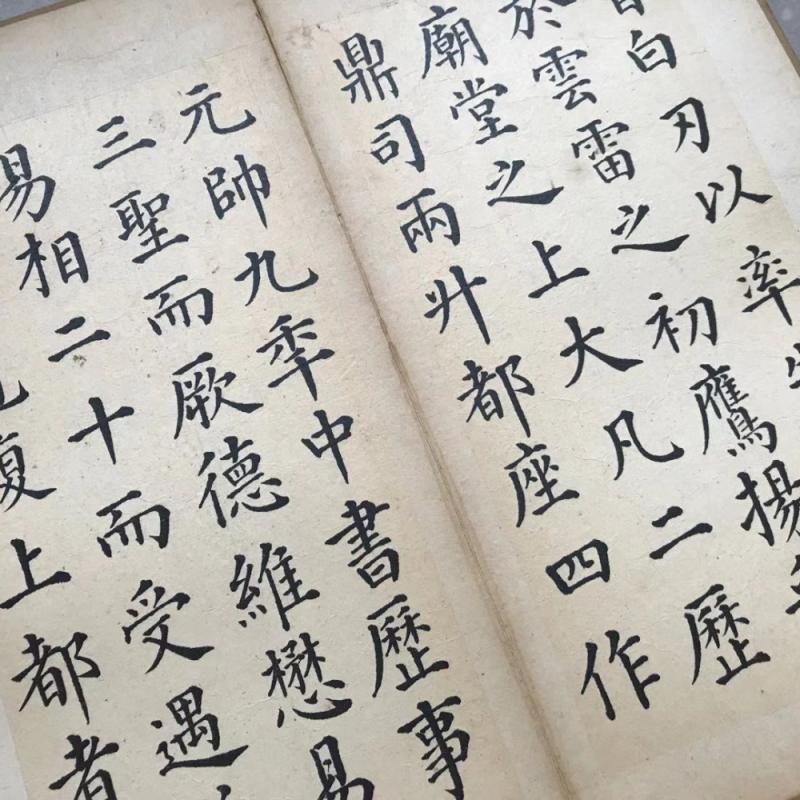 白刃以率
於雲雷之初鷹揚
廟堂之上大凡二歷
鼎司兩升都座四作
元帥九秊中書歷事
三聖而厥德維懋易
易相二十而受遇
復上都者